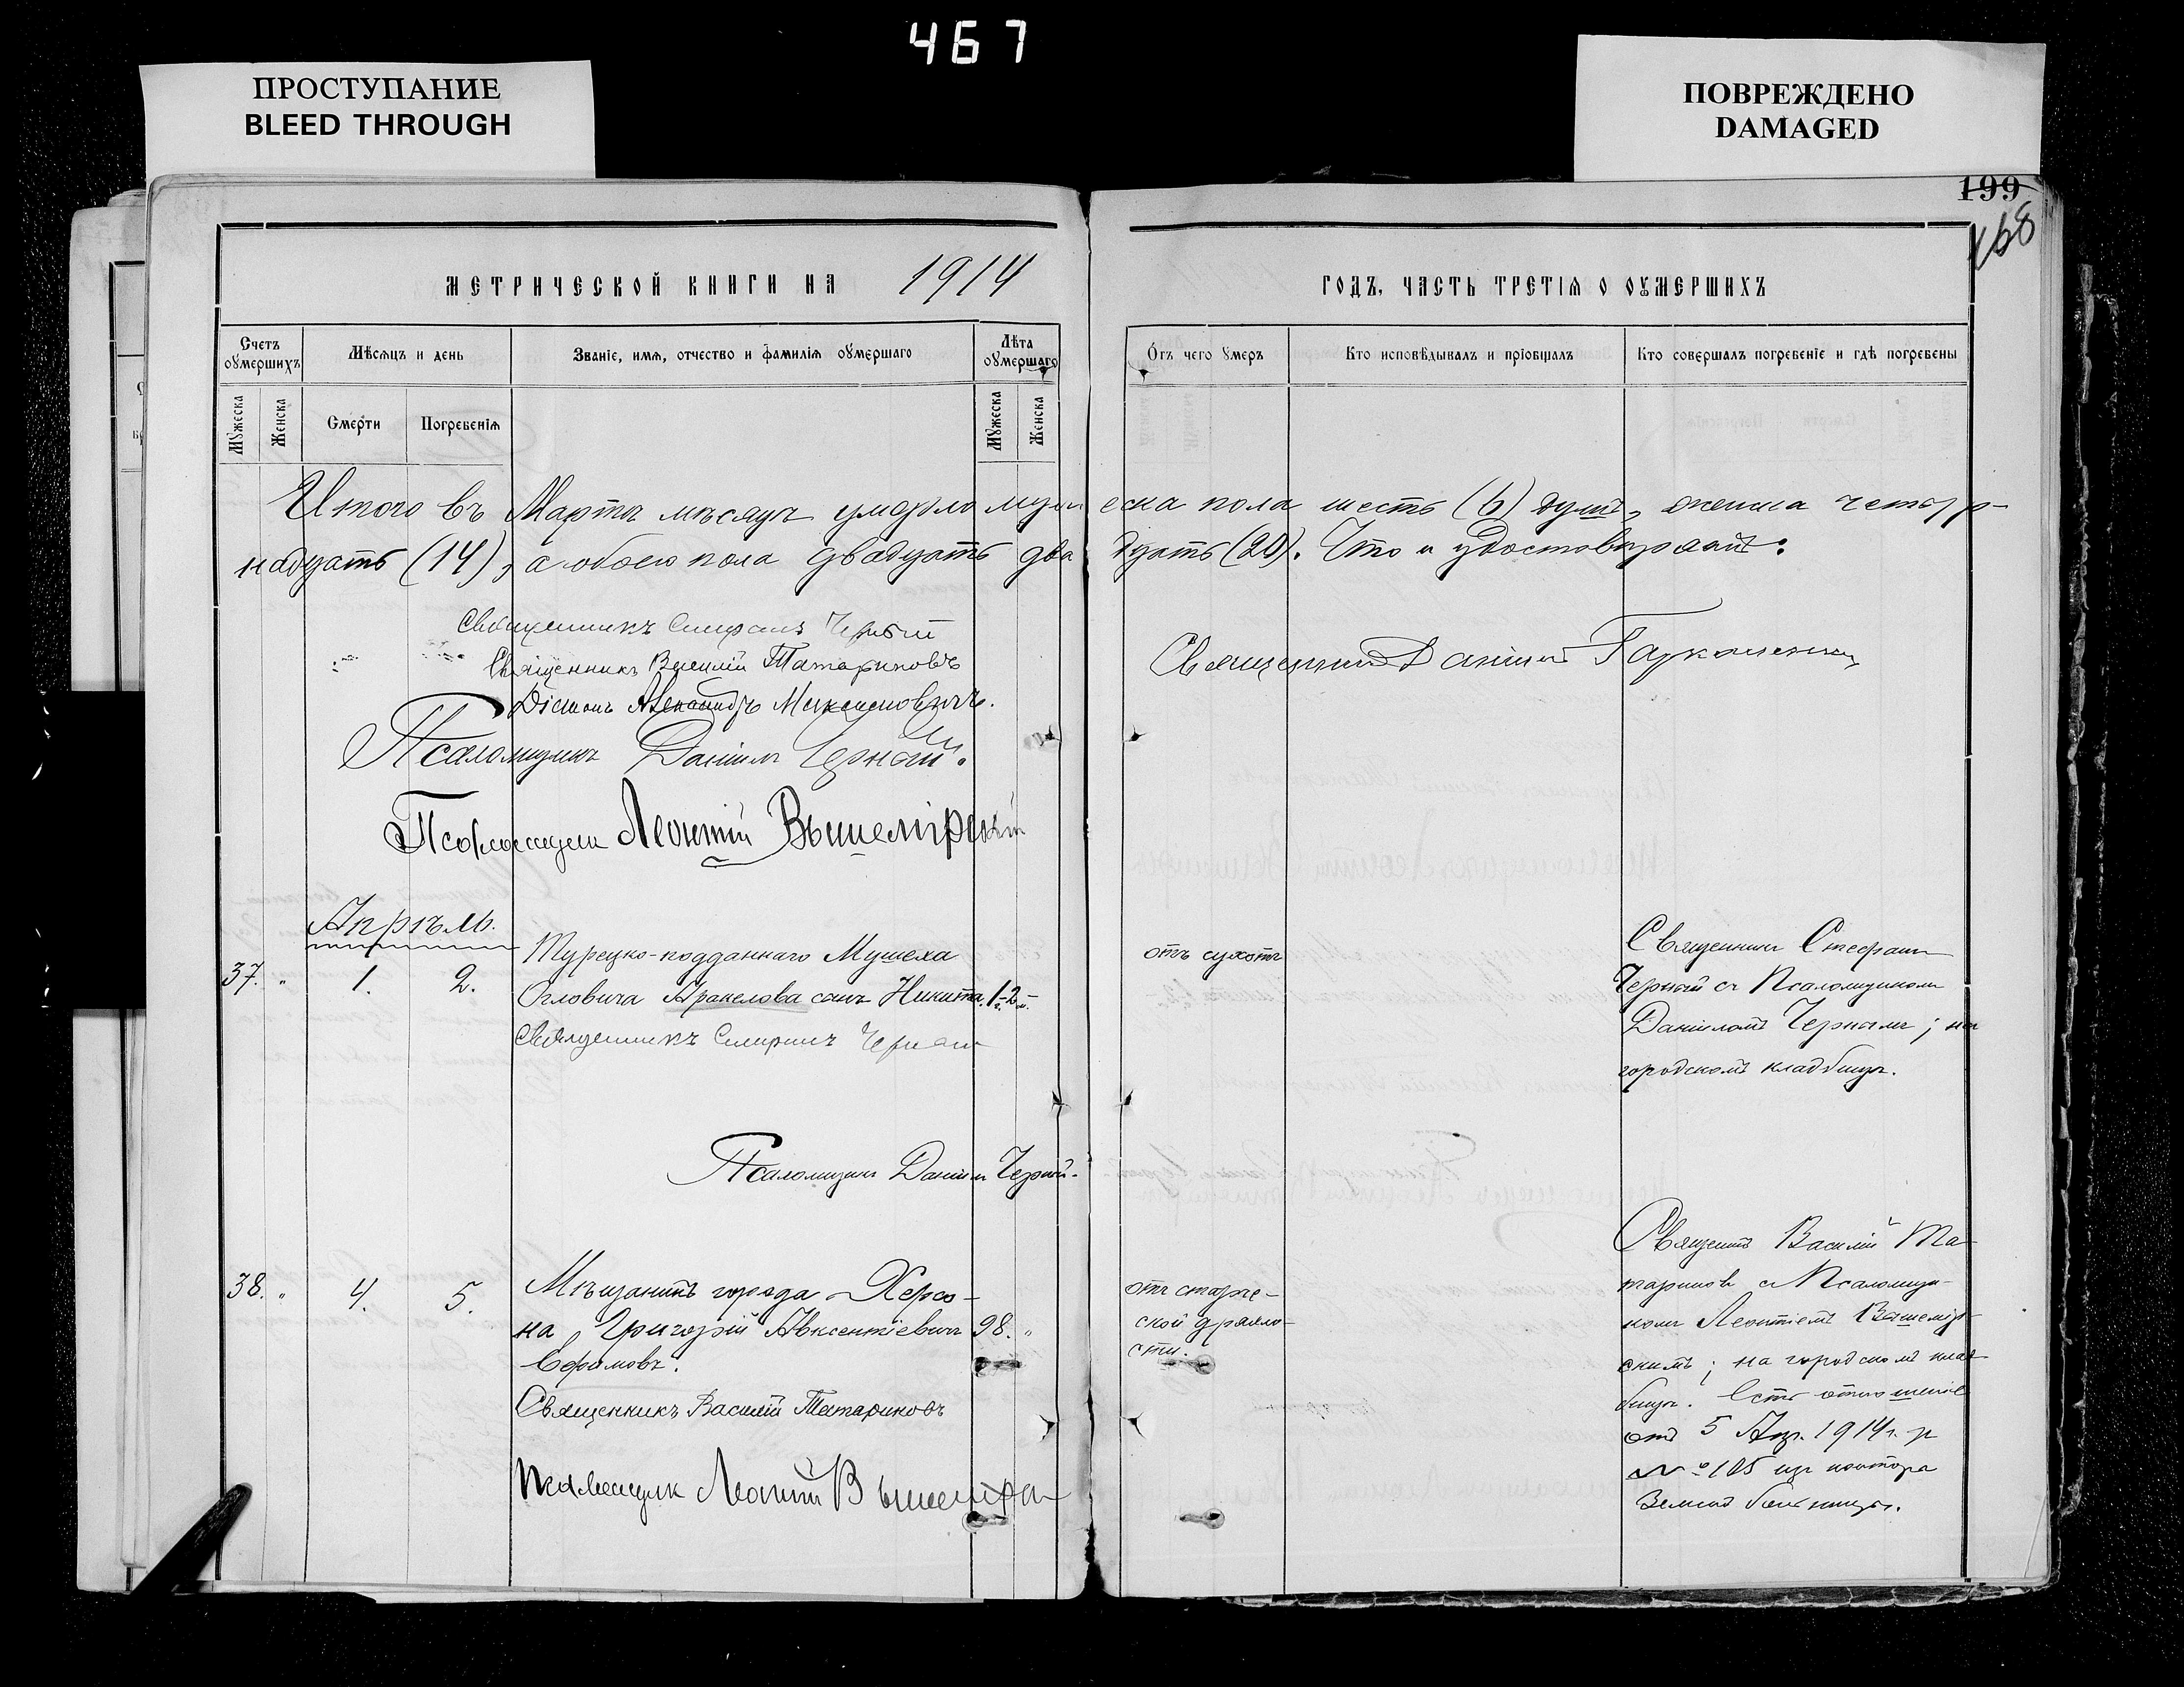 467
ПРОСТУПАНИЕ
BLEED THROUGH
ПОВРЕЖДЕНО
DAMAGED
199
168
МЕТРИЧЕСКОЙ КНИГИ НА 1914
ГОДЪ, ЧАСТЬ ТРЕТІѦ О ОУМЕРШИХЪ
Счетъ оумершихъ
Мѣсѧцъ и день
Званіе, имѧ, отчество и фамиліѧ оумершаго
Лѣта оумершаго
Отъ чего умеръ
Кто исповѣдывалъ и пріобщалъ
Кто совершалъ погребеніе и гдѣ погребены
Мужеска
Женска
Смерти
Погребеніѧ
Мужеска
Женска
Итого въ Мартѣ мѣсяцѣ умерло мужеска пола шесть (6) душъ, женска четыр-
надцать (14), а обоего пола двадцать два дцать (20). Что и удостовѣряемъ:
Священникъ Стефанъ Черный
Священникъ Василій Татариновъ
Діаконъ Александръ Максимовичъ.
Псаломщикъ Даніилъ Черный.
Псаломщикъ Леонтій Вышемірскій
Священникъ Даніилъ
Апрѣль.
37. " 1. 2.
Турецко-подданнаго Мушеха
Огловича Аракелова сынъ Никита. 1 2
Священникъ Стефанъ Черный
Псаломщикъ Даніилъ Черный.
отъ сухотъ
Священникъ Стефанъ
Черный съ Псаломщикомъ
Даніиломъ Чернымъ; на
городскомъ кладбищѣ.
38. " 4. 5.
Мѣщанинъ города Херсо-
на, Григорій Авксентіевичъ 98. "
Ефимовъ.
Священникъ Василій Татариновъ
Псаломщик Леонтій Вышемірскій
отъ старче-
ской дряхло-
сти.
Священникъ Василій Та-
тариновъ съ Псаломщи-
комъ Леонтіемъ Вышемір-
скимъ; на городскомъ клад-
бищѣ. Есть отношеніе
отъ 5 Апр. 1914 г.
№ 105 изъ конторы
Земской больницы.